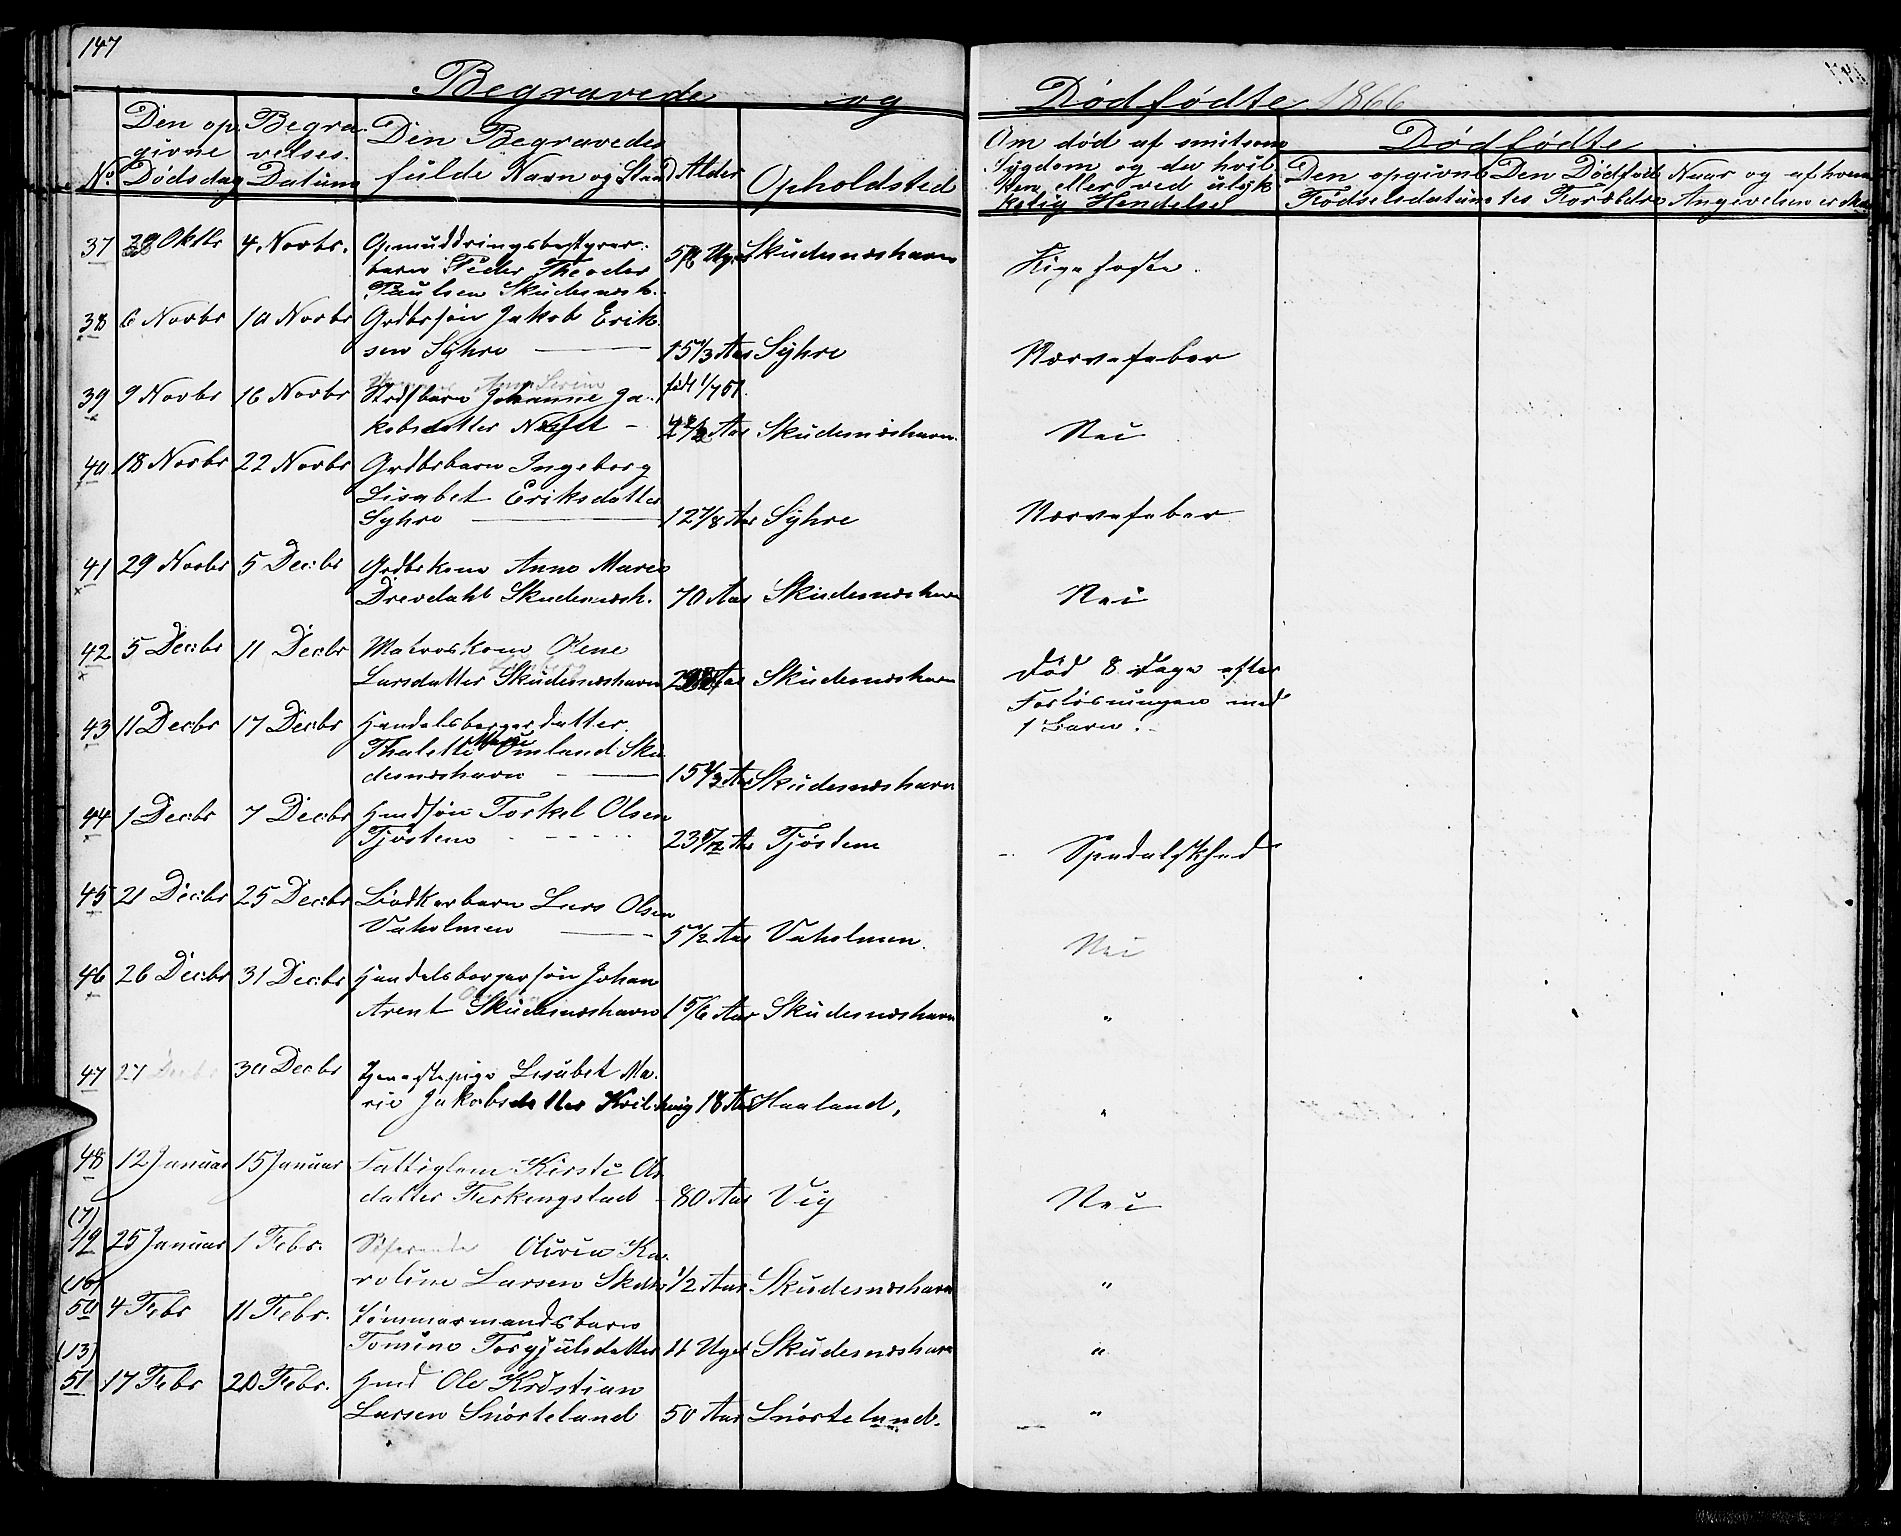 147
Begravede og Dødfødte 1866
No
Den opgivne Dødsdag
Begravelses Datum
Den Begravedes fulde Navn og Stand
Alder
Opholdsted
Om død af smitsom Sygdom og da hvilken, eller ved ulykkelig Hendelse
Dødfødte
Den opgivne Fødselsdatum
Den Dødfødtes Forældre
Naar og af hvem Angivelsen er skeet
37 29 Oktbr 4. Novbr.
barn Peder Theodor
Paulsen Skudesnæsh.
Uger Skudesnæshavn
38 6 Novbr 10 Novbr Grdbrsøn Jakob Erik
sen Syhre 15 1/3 Aar Syhre Nervefeber
39 9 Novbr 16 Novbr Johanne Ja
kobsdatter født 1/7 51.
Aar Skudesnæshavn. Nei
40 18 Novbr 22 Novbr Grdbrbarn Ingeborg
Lisabet Eriksdatter
Syhre 12 7/8 Aar Syhre Nervefeber
41 29 Novbr 5 Decbr Grdbrkone Anne Marie
Drevdahl Skudesnæsh. 70 Aar Skudesnæshavn Nei
42 5 Decbr 11 Decbr Matroskone Olene
Larsdatter Skudesnæshavn Aar Skudesnæshavn Død 8 Dage efter
Forløsningen med
1 Barn.
43 11 Decbr 17 Decbr Handelsborgerdatter
Thalette Omland Sku
desnæshavn 15 Aar Skudesnæshavn
44 1 Decbr 7 Decbr Hmdsøn Torkel Olsen
Tjøstem 23 Aar Tjøstem Spedalskhed
45 21 Decbr 25 Decbr Bødkerbarn Lars Olsen
Vaholmen 5 1/2 Aar Vaholmen. Nei
46 26 Decbr 31 Decbr Handelsborgersøn Johan
Arent Skudesnæshavn 1 5/6 Aar Skudesnæshavn "
47 27 Decbr 30 Decbr Tjenestepige Lisabet Ma
rie Jakobsdatter 18 Aar Haaland, "
48 12 Januar 15 Januar Fattiglem Kirsti Ols
datter Ferkengstad 80 Aar Vig Nei
49 25 Januar 1 Febr. Olivia Ka
roline Larsen 1/2 Aar Skudesnæshavn "
50 4 Febr 11 Febr. Tømmermandsbarn
Tomine Torgjulsdatter 11 Uger Skudesnæshavn "
(13)
51 17 Febr 20 Febr. Hmd Ole Kristian
Larsen Snørteland 50 Aar Snørteland. "